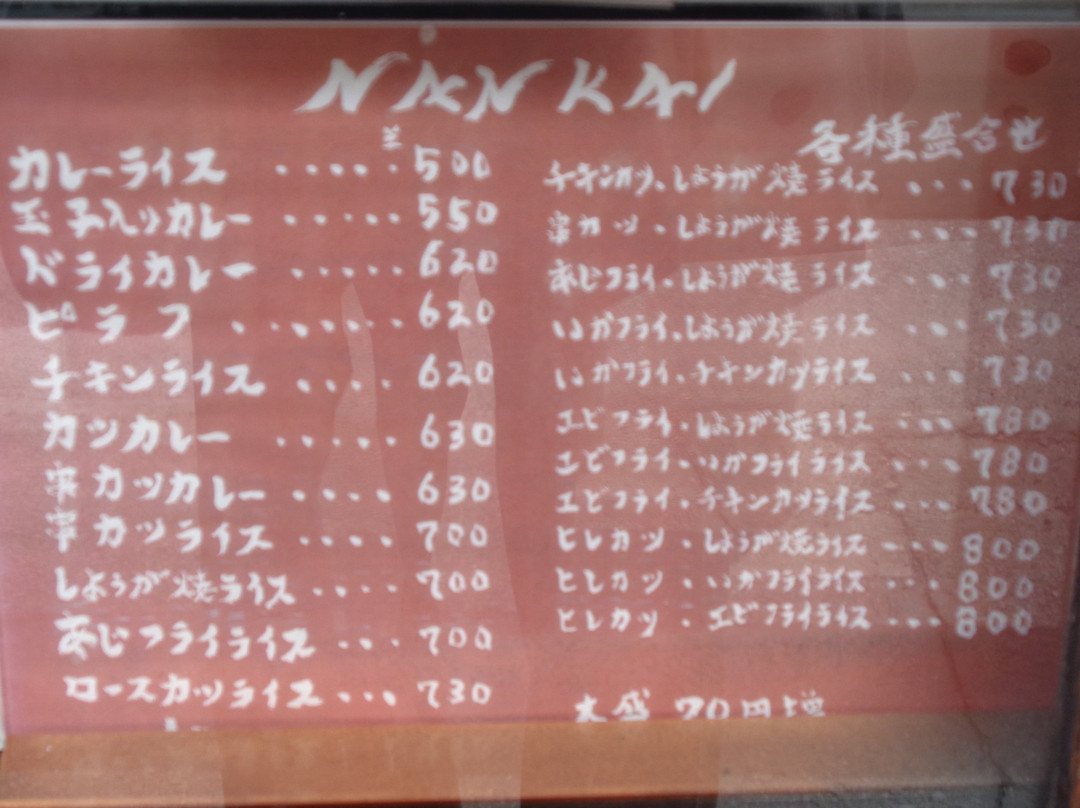 NANKAI
¥
カレーライス ..... 500
玉子入りカレー ..... 550
ドライカレー ..... 620
ピラフ ....... 620
チキンライス .... 620
カツカレー ..... 630
串カツカレー .... 630
串カツライス .... 700
しょうが焼ライス .... 700
あじフライライス ... 700
ロースカツライス ... 730
各種盛合せ
チキンカツ・しょうが焼ライス ... 730
串カツ・しょうが焼ライス ... 730
あじフライ・しょうが焼ライス ... 730
いかフライ・しょうが焼ライス ... 730
いかフライ・チキンカツライス ... 730
エビフライ・しょうが焼ライス ... 780
エビフライ・いかフライライス ... 780
エビフライ・チキンカツライス ... 780
ヒレカツ・しょうが焼ライス ... 800
ヒレカツ・いかフライライス ... 800
ヒレカツ・エビフライライス ... 800
大盛 70円増